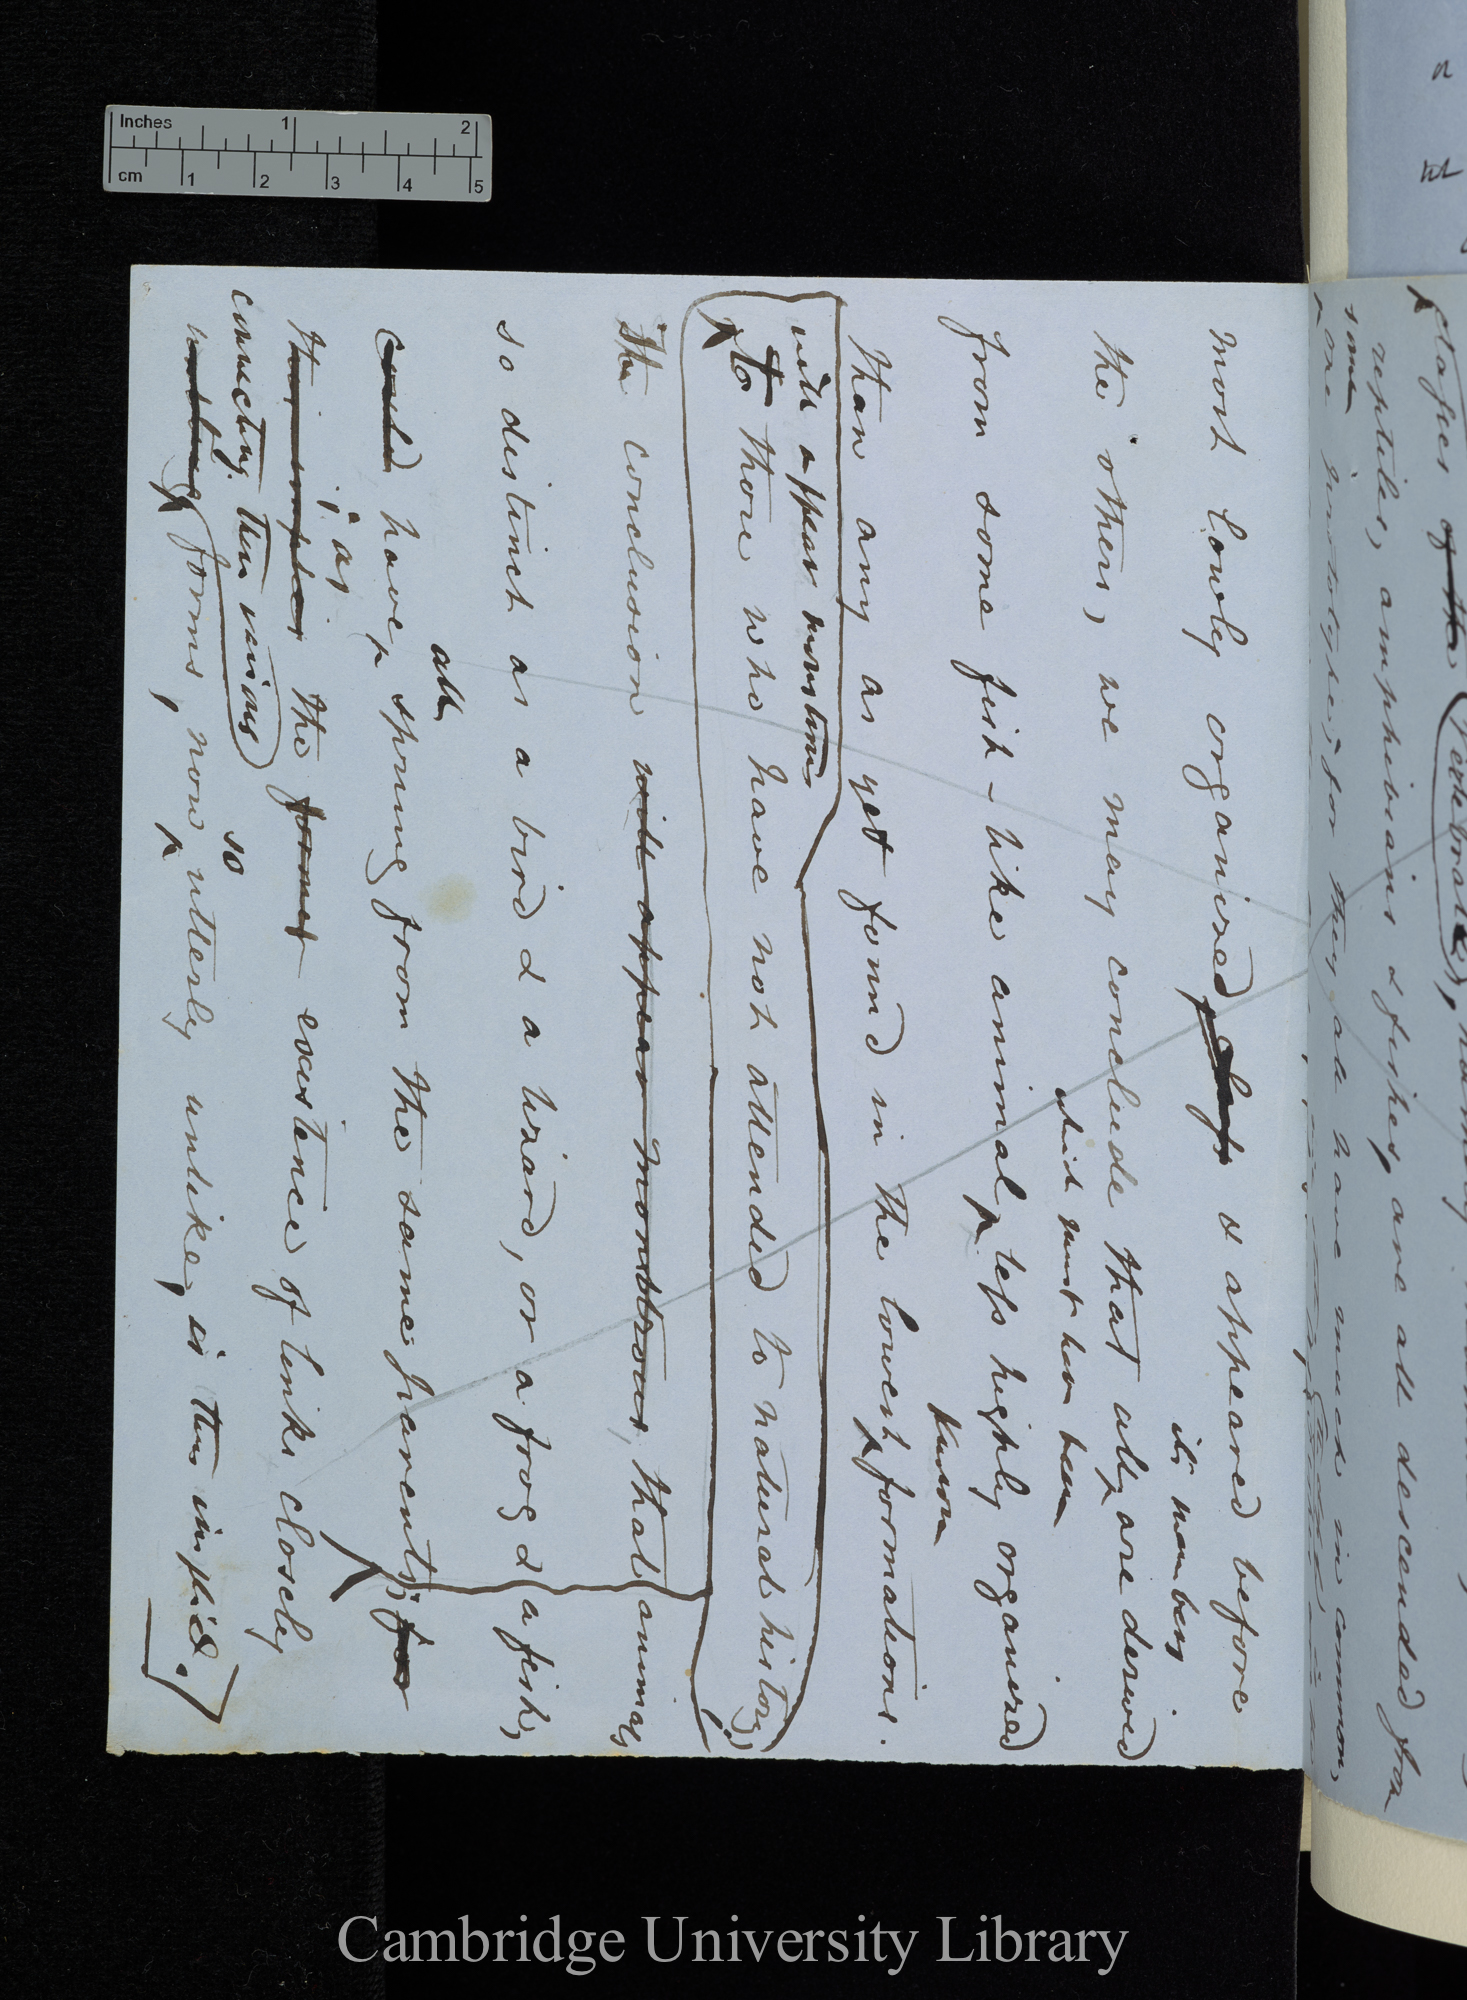 Inches 1 2
cm 1 2 3 4 5
stages of the (Vertebrata),
reptiles, amphibians & fishes, are all descended from
some
one prototype; for they all have much in common,
most lowly organised class & appeared before
its members
the others, we may conclude that all are derived
which must have been
from some fish-like animal, less highly organized
known
than any as yet found in the lowest formations.
will appear monstrous
to those who have not attended to natural history;
The conclusion will appear monstrous, that animals
so distinct as a bird & a lizard, or a frog & a fish,
all
could have sprung from the same parents; for
; as
the former existence of links closely
connecting these various so
forms, now utterly unlike, is thus implied.
Cambridge University Library